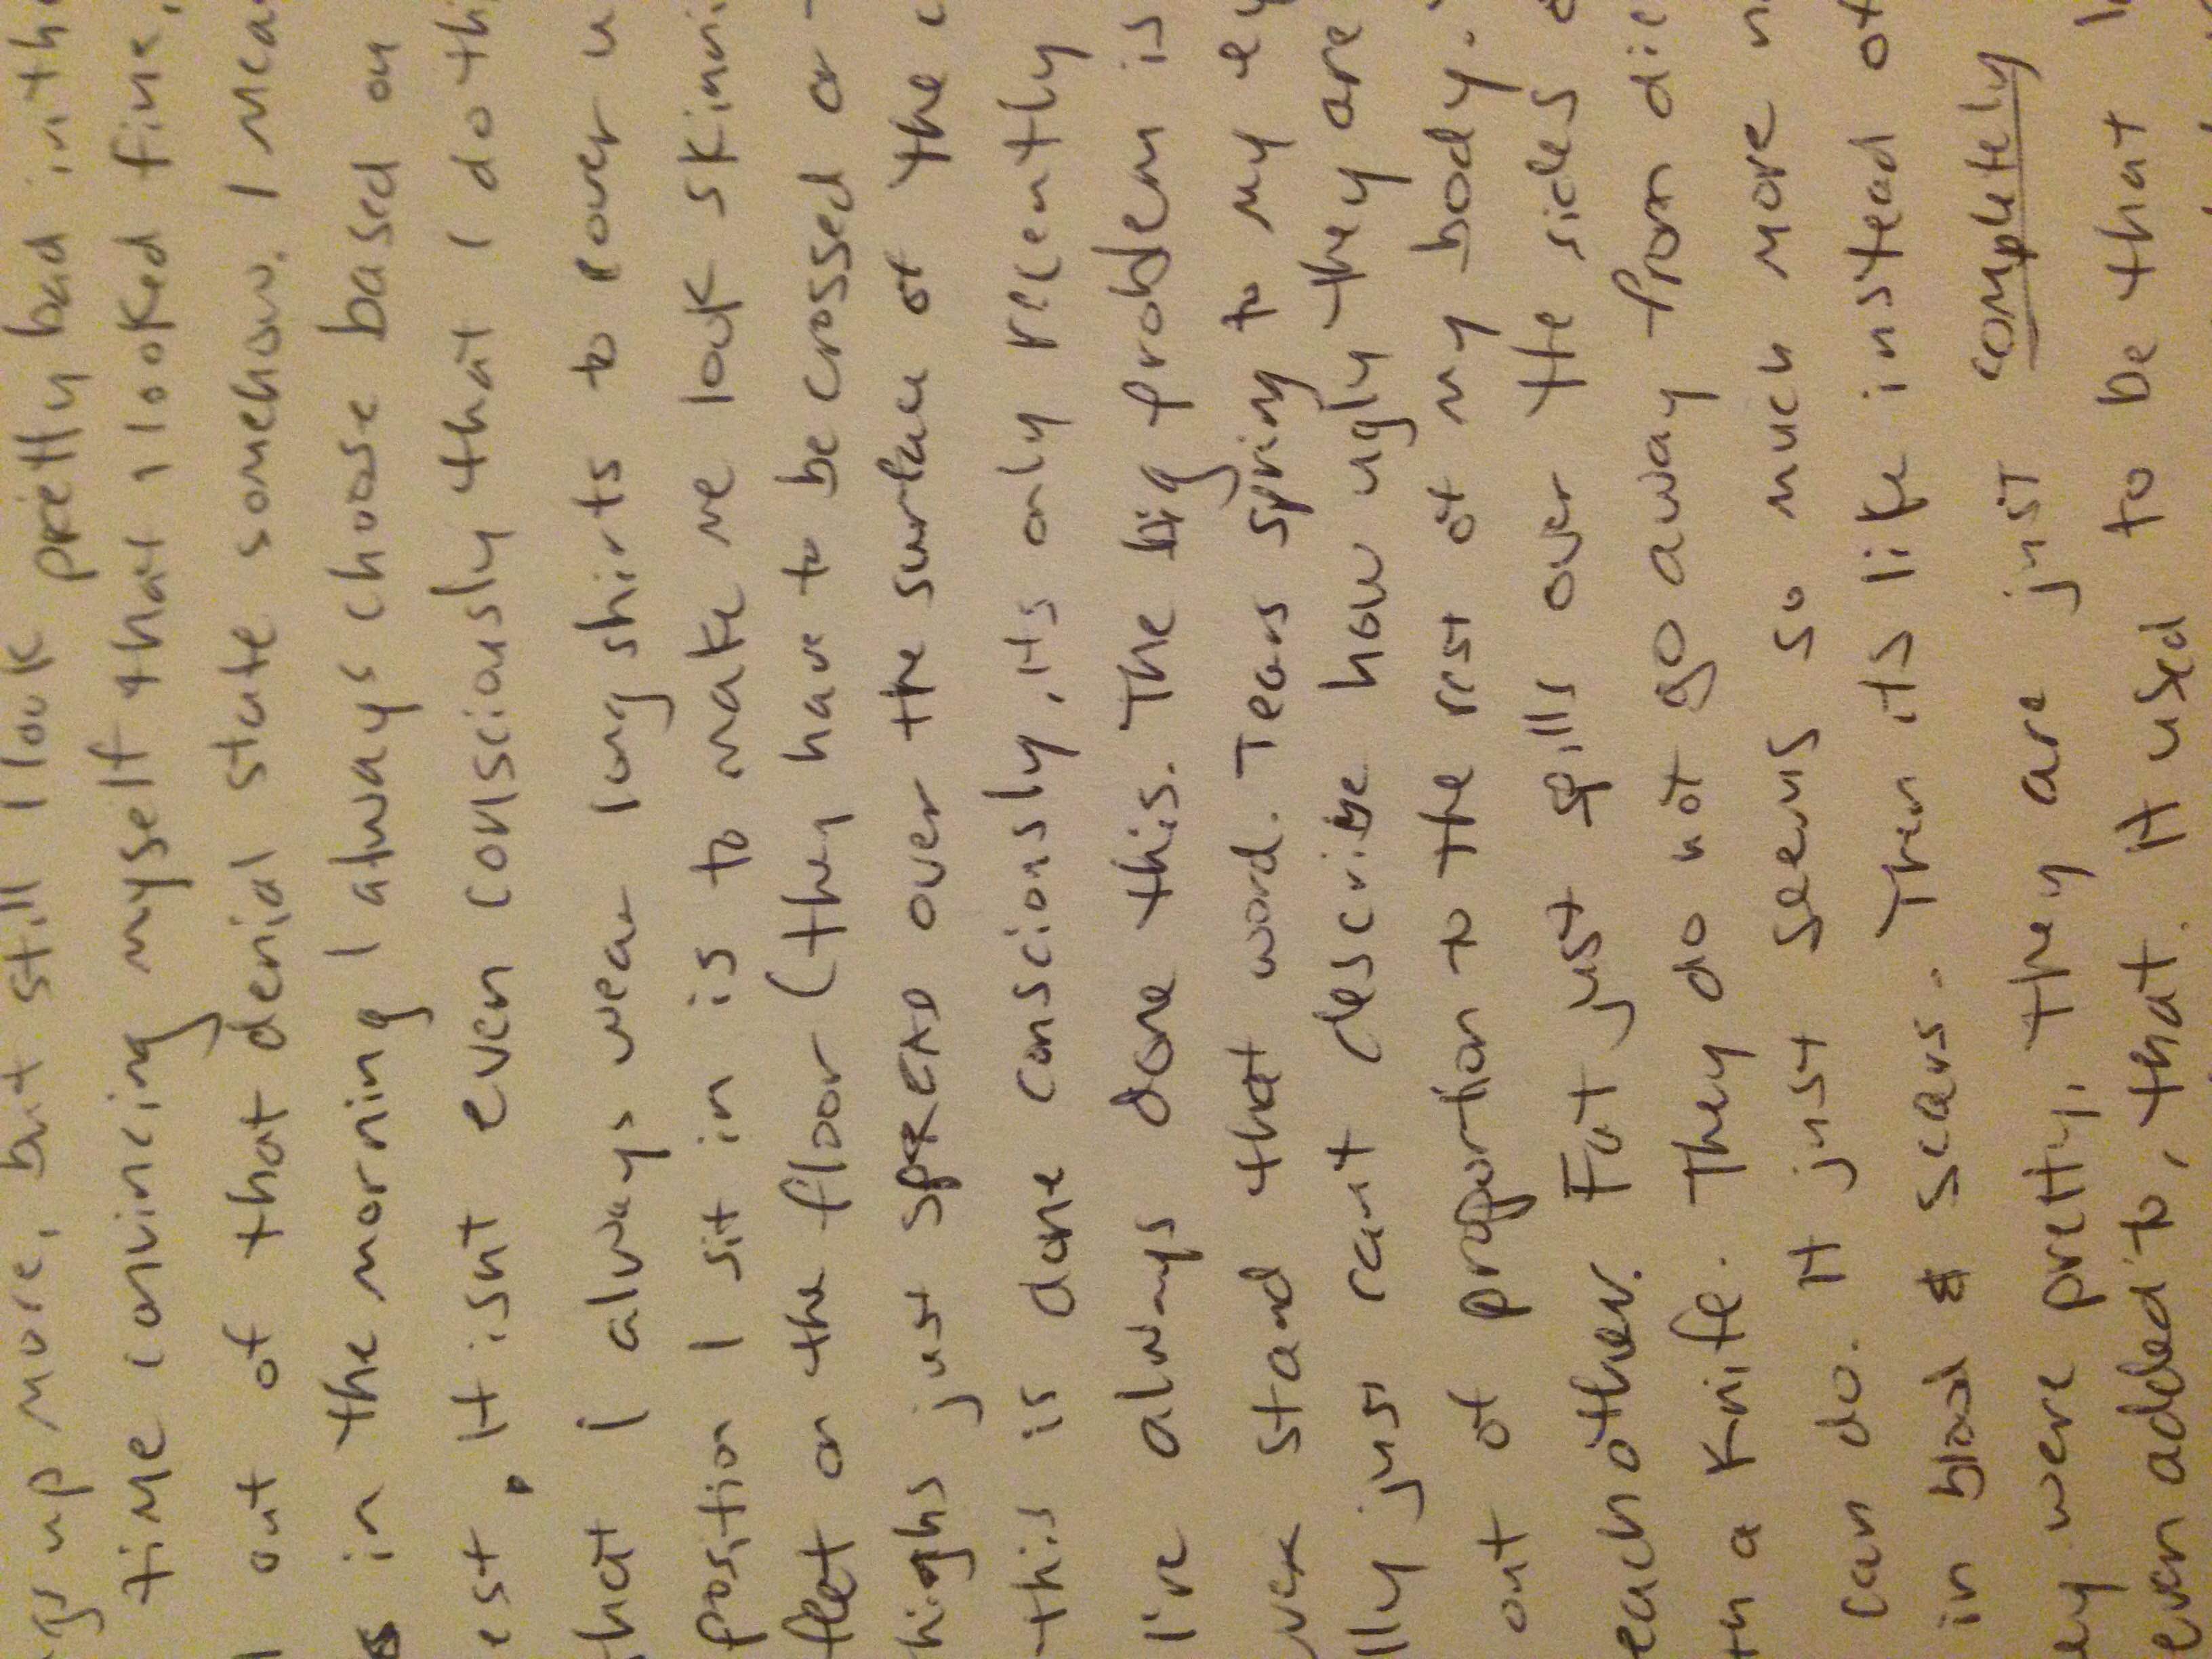 gs up more, but still I look pretty bad in the
time convincing myself that I looked fine,
out of that denial state somehow. I mea
in the morning I always choose based on
est. It isnt even consciously that I do thi
hat I always wear long shirts to cover u
position I sit in is to make me look skinni
feet on the floor (they have to be crossed or
highs just SPREAD over the surface of the c
this is done consciously, its only recently
I've always done this. The big problem is
stand that word. Tears spring to my ey
lly just cant describe how ugly they are
out of proportion to the rest of my body.
each other. Fat just spills over the sides o
th a knife. They do not go away from die
can do. It just seems so much more n
in blood & scars. Then its like instead of
ey were pretty, they are just completely
even added to, that. It used to be that I